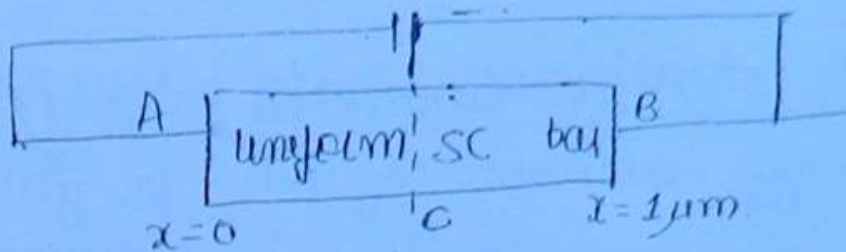 A B
uniform SC bar
x=0 C x=1μm